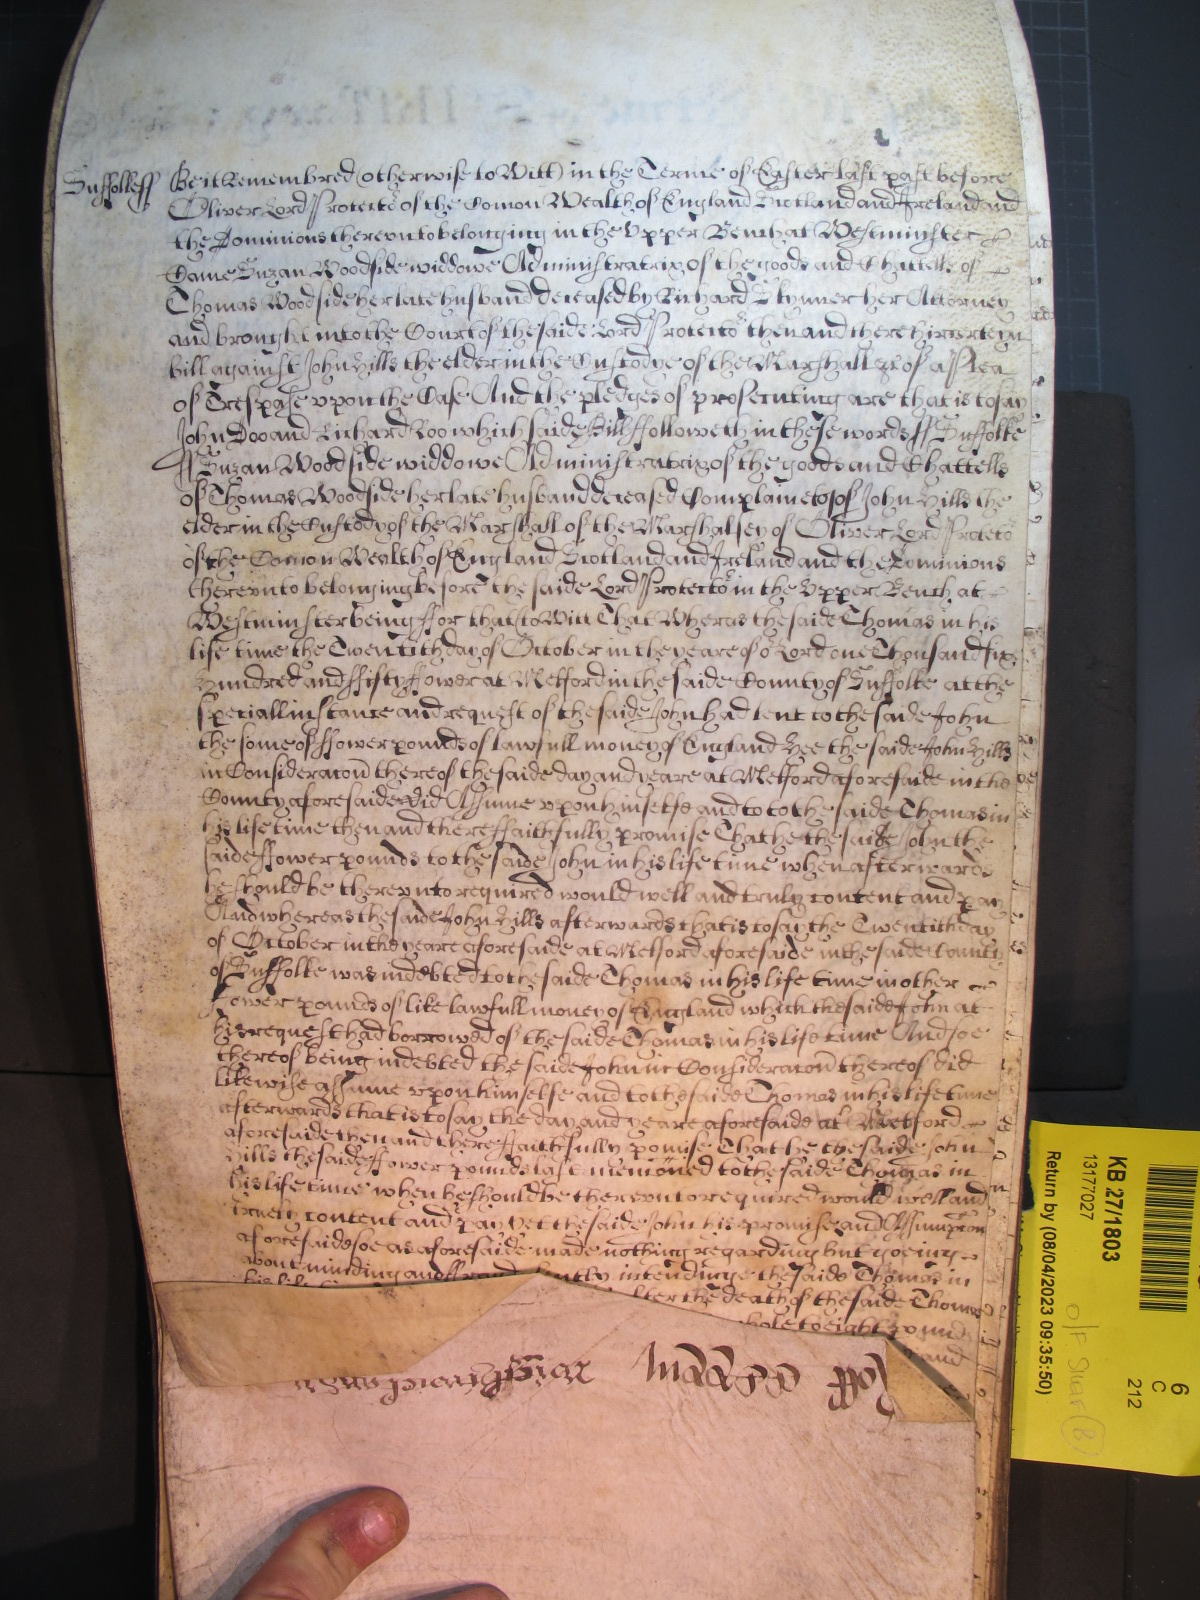 Suffolke ss Be it Remembred (otherwise to Witt) in the Terme of Easter last past before
Oliver Lord Protector of the Comon Wealth of England Scotland and Ireland and
the Dominions thereunto belonging in the Upper Bench at Westminster
Came Suzan Woodside widdowe Administratrix of the goods and Chattells of
Thomas Woodside her late husband deceased by Richard Skynner her Attorney
and brought into the Court of the saide Lord Protector then and there hir certeyn
bill against John Hills the elder in the Custodye of the Marshall &c of a Plea
of Trespasse upon the Case And the pledges of prosecuting are that is to say
John Doo and Richard Roo which saide Bill followeth in these words ss Suffolke
ss Suzan Woodside widdowe Administratrix of the goods and Chattells
of Thomas Woodside her late husband deceased Complaineth of John Hills the
elder in the Custody of the Marshall of the Marshalsey of Oliver Lord Protector
of the Comon Wealth of England Scotland and Ireland and the Dominions
thereunto belonging before the saide Lord Protector in the Upper Bench at
Westminster being ffor that to Witt That Wheras the saide Thomas in his
life time the Twentith day of October in the yeare of our Lord one Thousand six
Hundred and ffifty ffower at Melford in the saide County of Suffolke at the
speciall instance and request of the saide John had lent to the saide John
the some of ffower pounds of lawfull money of England Hee the saide John Hills
in Consideracon thereof the saide day and yeare at Melford aforesaide in the
County aforesaide did Assume upon himselfe and to to the saide Thomas in
his life time then and there ffaithfully promise That he the saide John the
saide ffower pounds to the saide John in his life time when afterwards
he should be thereunto required would well and truly content and pay
And whereas the saide John Hills afterwards that is to say the Twentith day
of October in the yeare aforesaide at Melford aforesaide in the saide County
of Suffolke was indebted to the saide Thomas in his life time in other
ffower pounds of like lawfull money of England which the saide John at
his request had borrowed of the saide Thomas in his life time And soe
thereof being indebted the saide John in Consideracon thereof did
likewise assume upon himselfe and to the saide Thomas in his life time
afterwards that is to say the day and yeare aforesaide at Melford
aforesaide then and there ffaithfully pomise That he the saide John
Hills the saide ffower pounds last mencioned to the saide Thomas in
his life time when he should be thereunto required would well and
truely content and pay yet the saide John his promise and Assumpcon
aforesaide soe as aforesaide made nothing regarding but goeing
about minding and intendinge the saide Thomas in
his life after the death of the saide Thomas
whole to eight pound
and
KB 27/1803
13177027
Return by (08/04/2023 09:35:50)
6
C
212